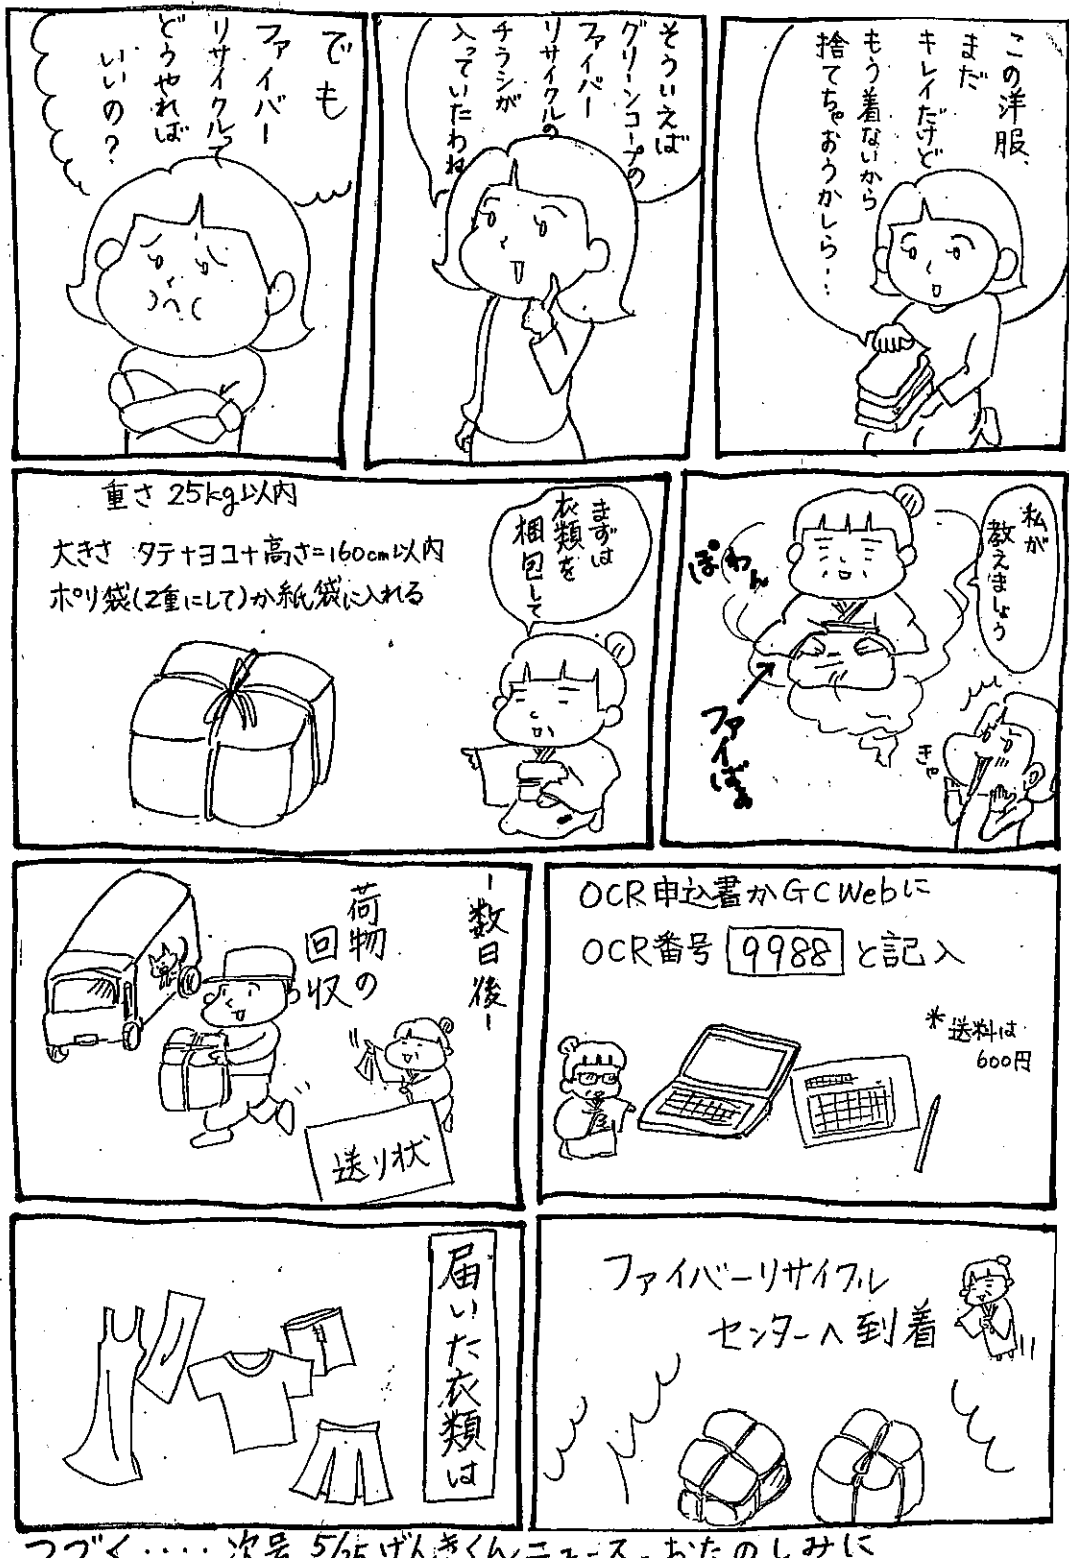 この洋服、
まだ
キレイだけど
もう着ないから
捨てちゃおうかしら…
そういえば
グリーンコープの
ファイバー
リサイクルの
チラシが
入っていたわね
でも
ファイバー
リサイクルって
どうやれば
いいの?
私が
教えましょう
ぽわん
ファイばぁ
きゃ
まずは
衣類を
梱包して
重さ 25kg以内
大きさ タテ+ヨコ+高さ=160cm以内
ポリ袋(2重にして)か紙袋に入れる
OCR申込書かGCWebに
OCR番号 9988 と記入
*送料は
600円
-数日後-
荷物の
回収
送り状
ファイバーリサイクル
センターへ到着
届いた衣類は
つづく・・・・次号 5/25 げんきくんニュース、おたのしみに